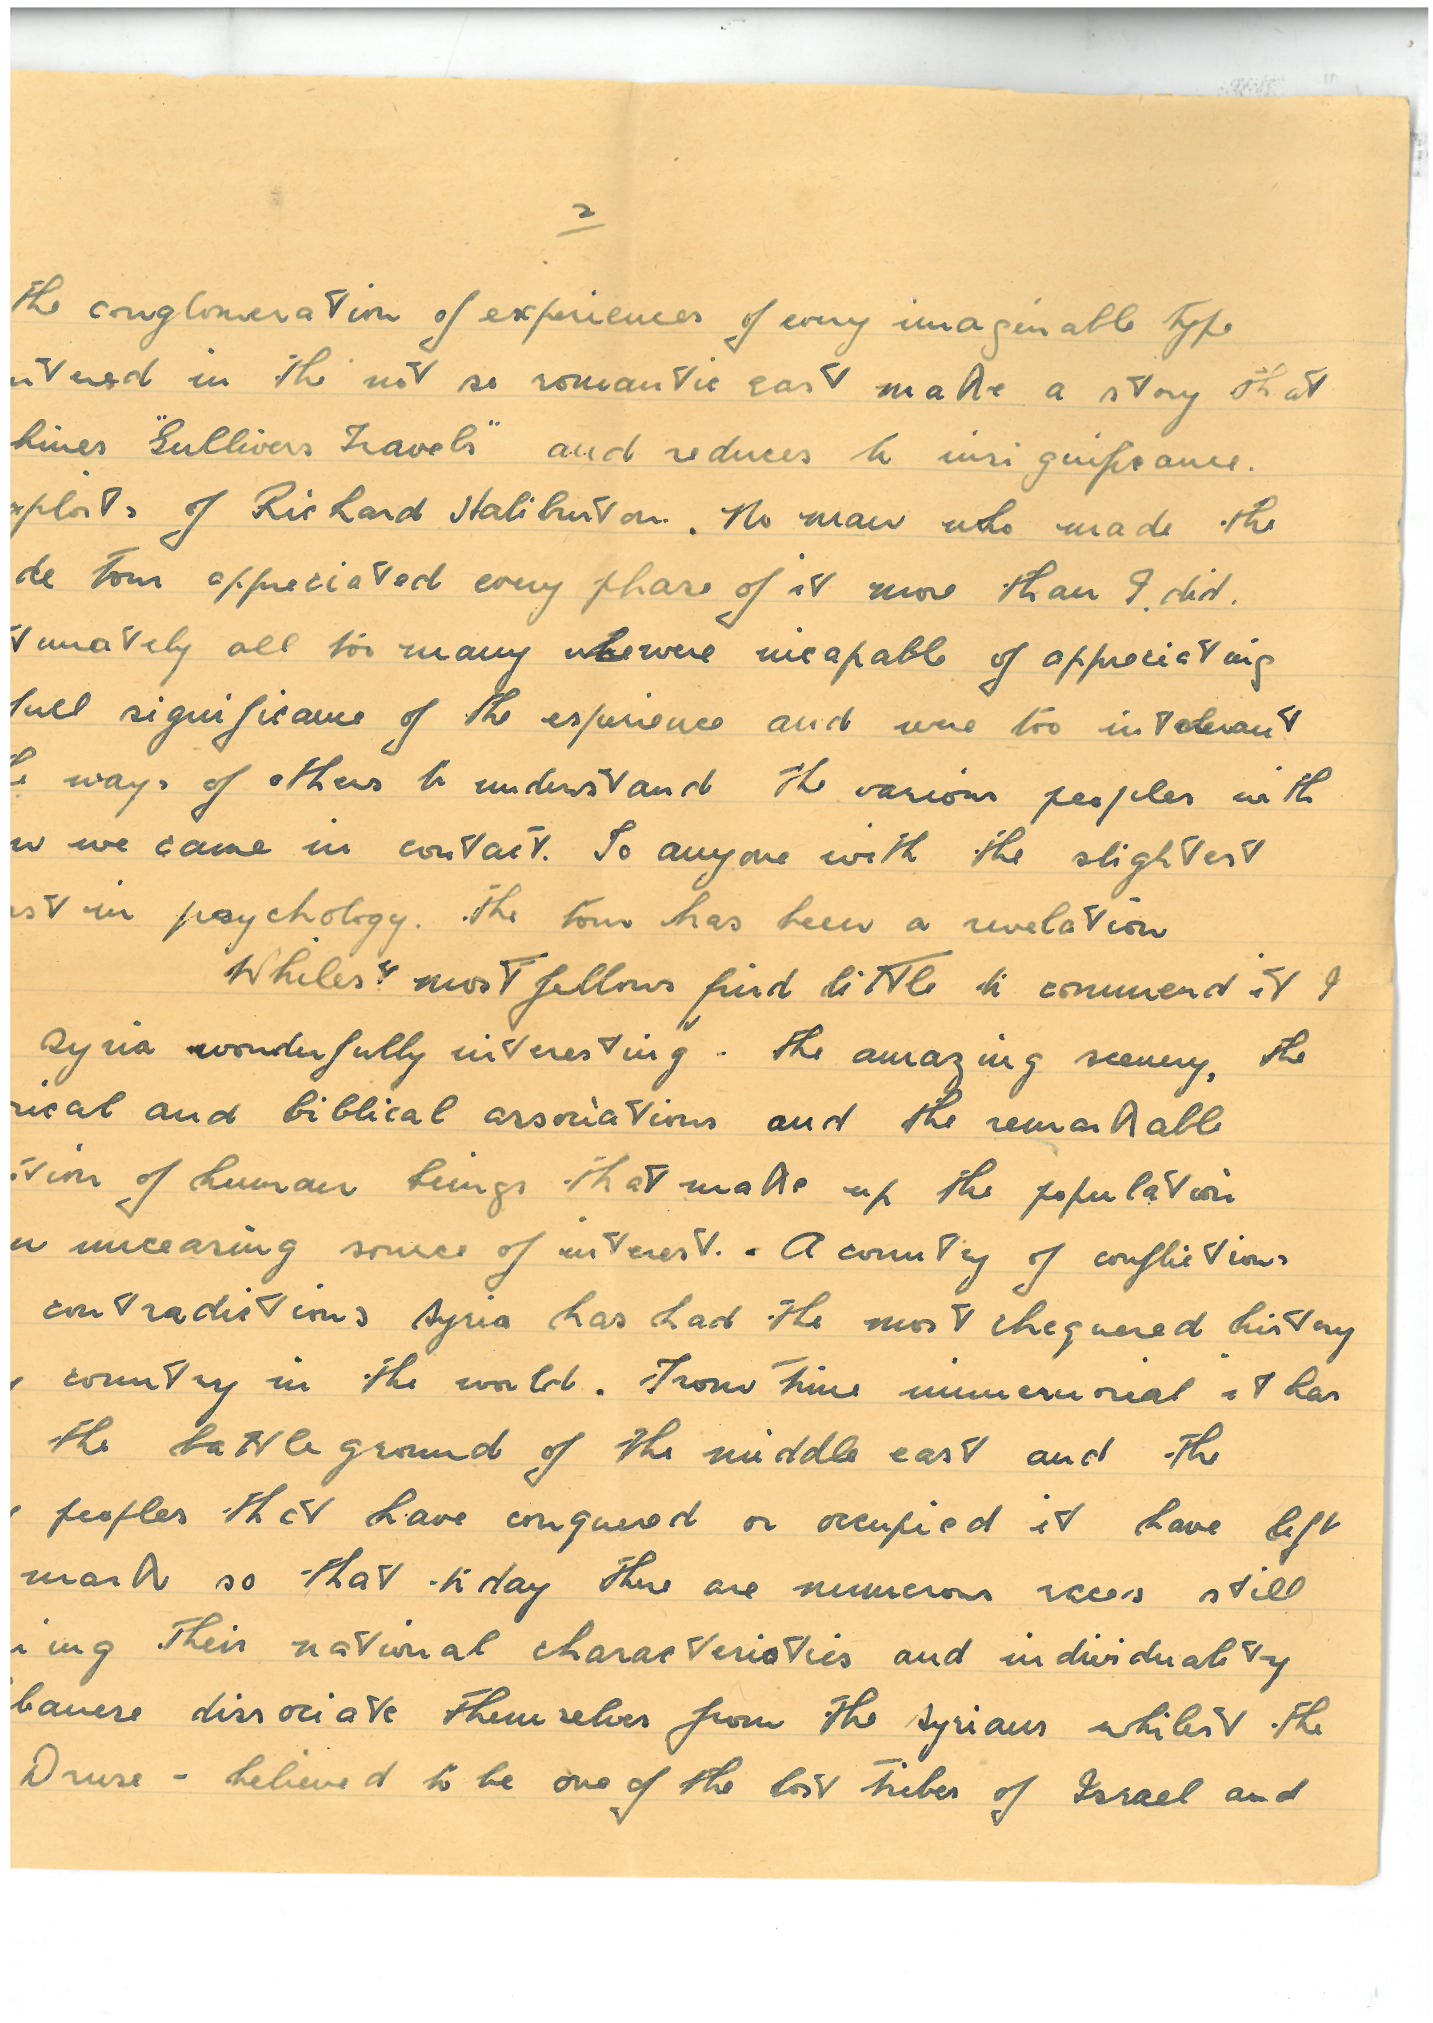 2
the conglomeration of experiences of every imaginable type
ntered in the not so romantic east make a story that
hines "Gullivers Travels" and reduces to insignificance.
xploits of Richard Haliburton. No man who made the
de tour appreciated every phase of it more than I did.
tunately all too many were incapable of appreciating
full significance of the experience and were too intolerant
e ways of others to understand the various peoples with
m we came in contact. To anyone with the slightest
est in psychology. the tour has been a revelation
Whilest most fellows find little to commend it I
Syria wonderfully interesting. the amazing scenery, the
rical and biblical associations and the remarkable
tion of human beings that make up the population
n unceasing source of interest. - A country of conflictions
contradictions Syria has had the most chequered history
y country in the world. From time immemorial it has
the battle ground of the middle east and the
peoples that have conquered or occupied it have left
mark so that to day there are numerous races still
ing their national characteristics and individuality
banese dissociate themselves from the Syrians whilest the
Druse - believed to be one of the lost tribes of Israel and